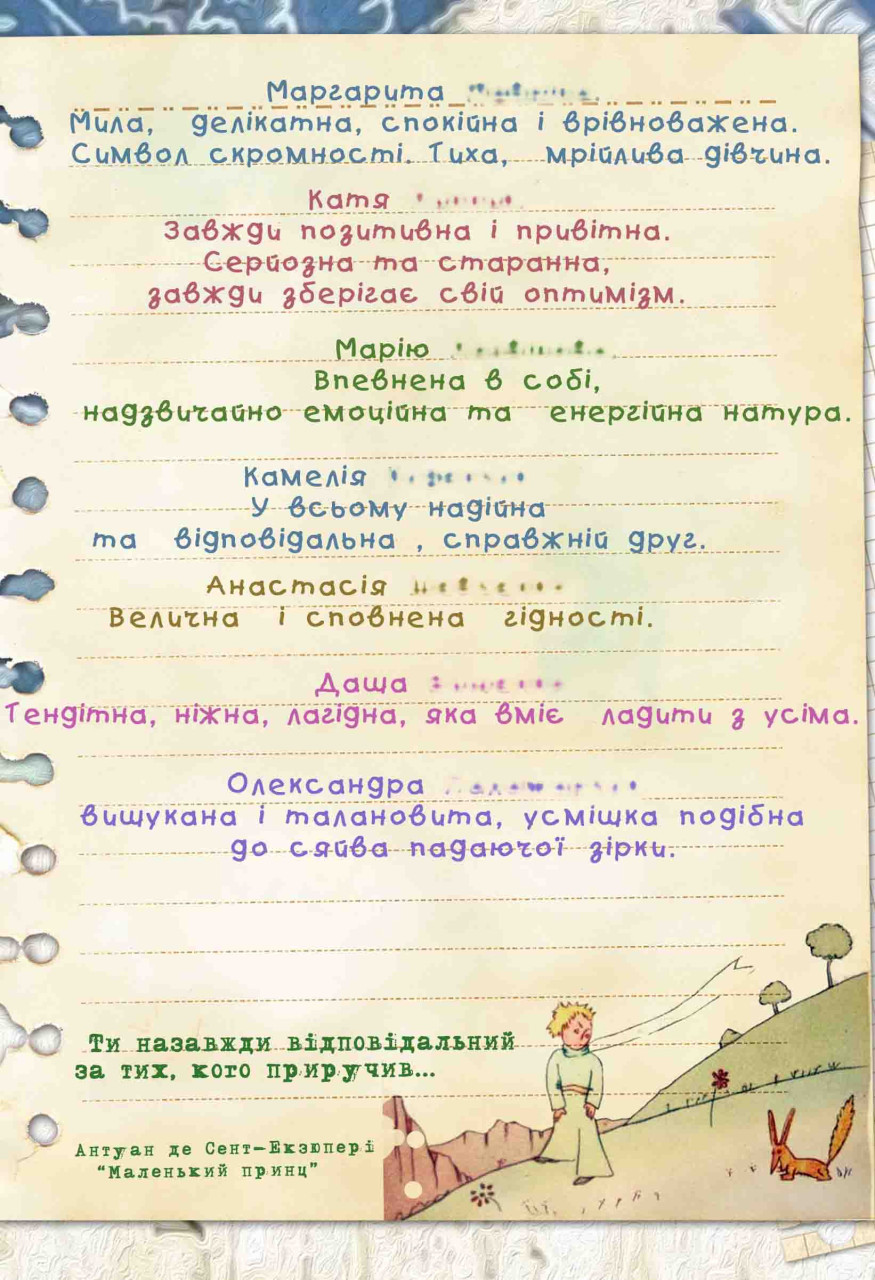 Маргарита
Мила, делікатна, спокійна і врівноважена.
Символ скромності. Тиха, мрійлива дівчина.
Катя
Завжди позитивна і привітна.
Серйозна та старанна,
завжди зберігає свій оптимізм.
Марію
Впевнена в собі,
надзвичайно емоційна та енергійна натура.
Камелія
У всьому надійна
та відповідальна , справжній друг.
Анастасія
Велична і сповнена гідності.
Даша
Тендітна, ніжна, лагідна, яка вміє ладити з усіма.
Олександра
вишукана і талановита, усмішка подібна
до сяйва падаючої зірки.
Ти назавжди відповідальний
за тих, кого приручив...
Антуан де Сент-Екзюпері
“Маленький принц”